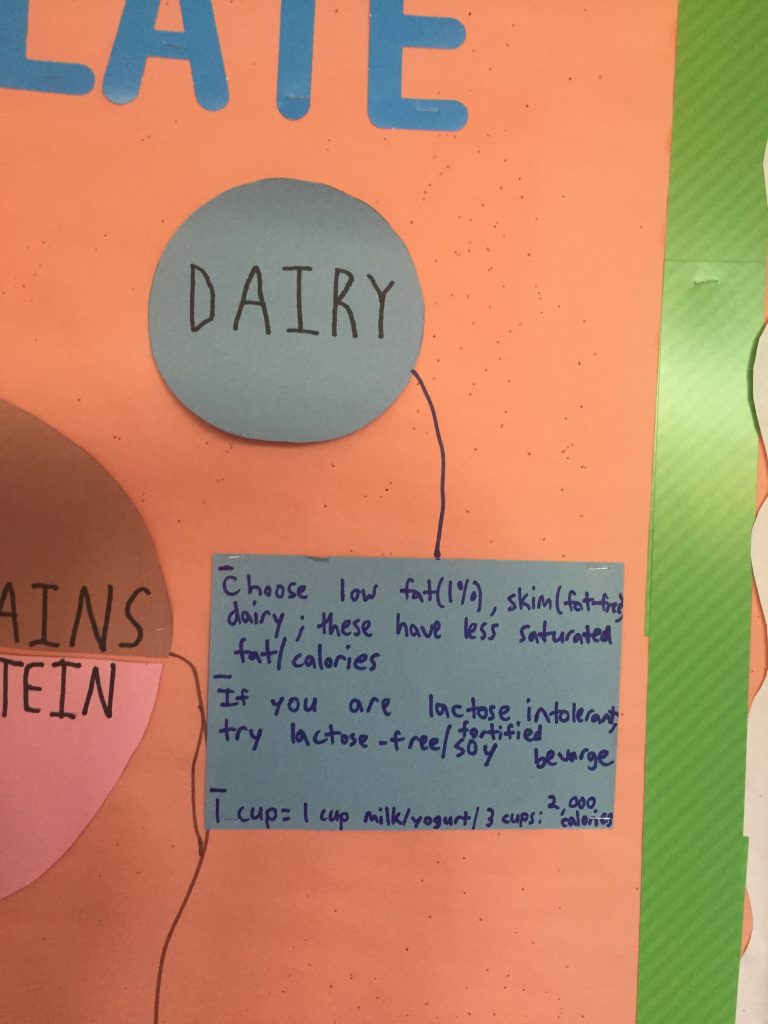 LATE
DAIRY
AINS
TEIN
- Choose low fat(1%), skim(fat-free)
dairy; these have less saturated
fat/calories
- If you are lactose intolerant,
try lactose-free/fortified soy bevarge
- 1 cup = 1 cup milk/yogurt/ 3 cups: 2,000 calories